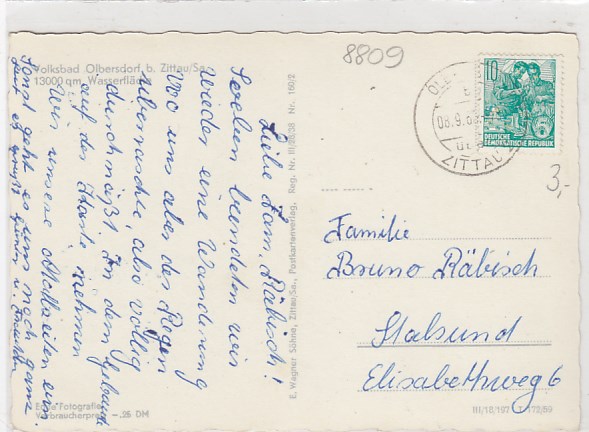 Volksbad Olbersdorf b. Zittau/Sa.
13000 qm Wasserfläche
Liebe Fam. Räbisch!
Soeben beendeten wir
wieder eine Wanderung
wo uns aber der Regen
überraschte, also völlig
durchnäßt. In dem Gebäude
auf der Karte nehmen
wir unsere Mahlzeiten ein.
Sonst geht es uns noch ganz
gut, es grüßt
Echte Fotografie
Verbraucherpreis –.25 DM
E. Wagner Söhne, Zittau/Sa., Postkartenverlag, Reg. Nr. III/28/38 Nr. 160/2
8809
08.9.6
ZITTAU
10
DEUTSCHE
DEMOKRATISCHE REPUBLIK
3,-
Familie
Bruno Räbisch
Stalsund
Elisabethweg 6
III/18/197 T 172/59